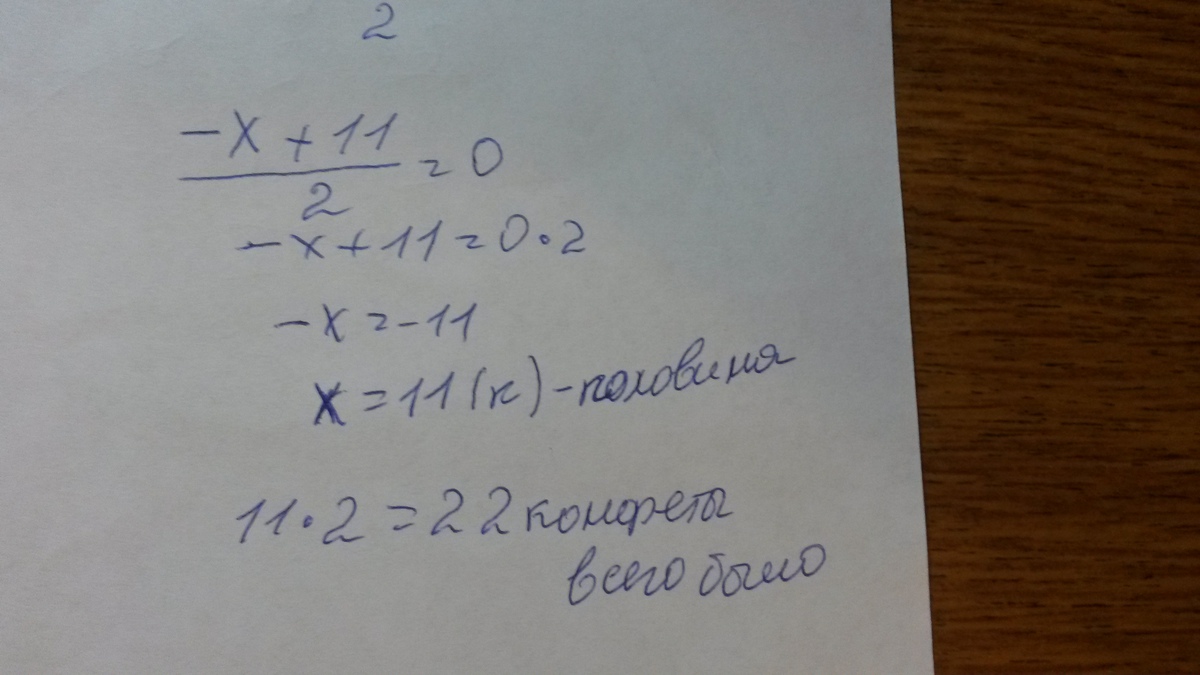 2
-x + 11
2
= 0
-x + 11 = 0 · 2
-x = -11
x = 11 (к) - половина
11 · 2 = 22 конфеты
всего было